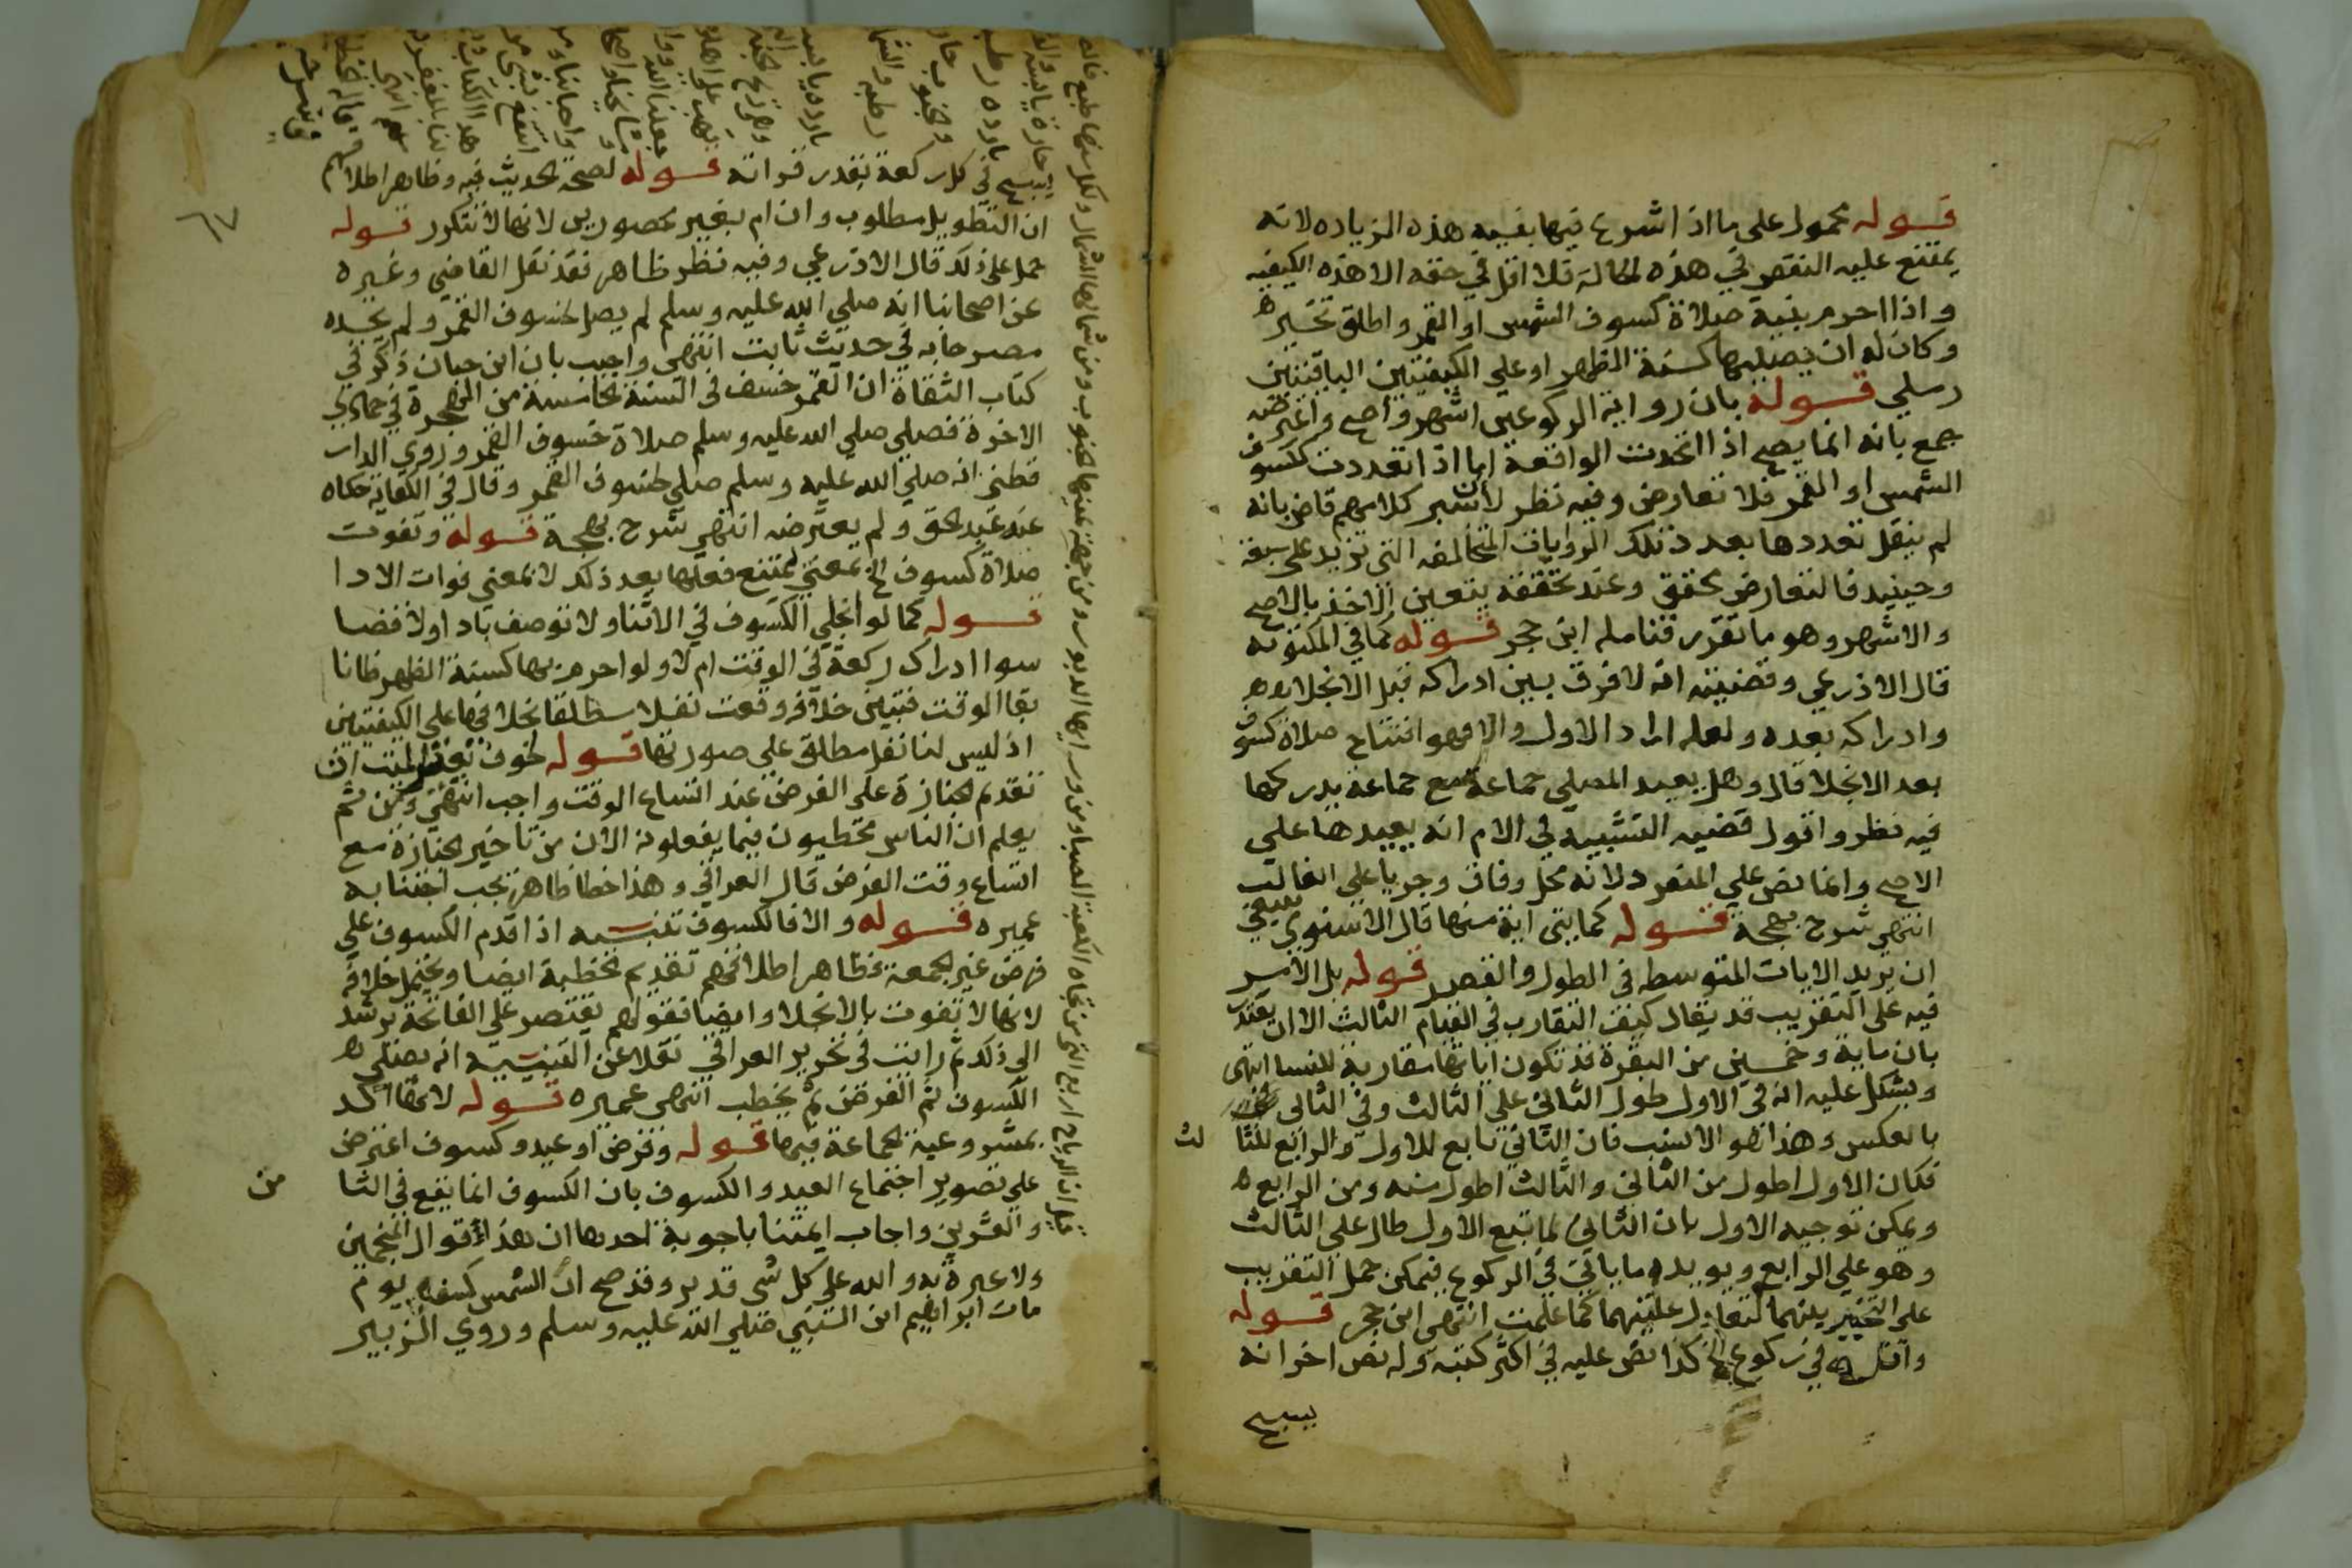 قوله محمول على ما اذا شرع فيها بنية هذه الزيادة لانه
يمتنع عليه النقص في هذه الحالة فلا اقل في حقه الا هذه الكيفيه
واذا احرم بنية صلاة كسوف الشمس او القمر واطلق تخير
وكان له ان يصليها كسنة الظهر او على الكيفيتين الباقيتين
رملي قوله بان رواية الركوعين اشهر واصح واعترضه
جمع بانه انما يصح اذا اتحدت الواقعة اما اذا تعددت ككسوف
الشمس او القمر فلا تعارض وفيه نظر لان سبر كلامهم قاض بانه
لم ينقل تعددها بعدد تلك الروايات المتخالفه التي تزيد على سبعة
وحينيد فالتعارض محقق وعند تحققه يتعين الاخذ بالاصح
والاشهر وهو ما تقرر فتامله ابن حجر قوله كما في المكتوبة
قال الاذرعي وقضيته انه لا فرق بين ادراكه قبل الانجلا
وادراكه بعده ولعله اراد الاول والا فهو افتتاح صلاة كسوف
بعد الانجلا قال وهل يعيد المصلي جماعة مع جماعة يدركها
فيه نظر واقول قضية التشبيه في الام انه يعيدها على
الاصح وانما نص على المنفرد لانه محل وفاق وجريا على الغالب
انتهى شرح بهجة قوله كمايتي اية منها قال الاسنوي ينبغي
ان يريد الايات المتوسطه في الطول والقصر قوله بل الامر
فيه على التقريب قد يقال كيف التقارب في القيام الثالث الا ان يعتذر
بان ماية وخمسين من البقرة قد تكون اياتها مقاربة للنسا انتهى
ويشكل عليه انه في الاول طول الثاني على الثالث وفي الثاني
بالعكس وهذا هو الانسب فان الثاني تابع للاول والرابع للثا
لث
فكان الاول اطول من الثاني والثالث اطول منه ومن الرابع
ويمكن توجيه الاول بان الثاني لما تبع الاول طال على الثالث
وهو على الرابع ويويده ما ياتي في الركوع فيمكن حمل التقريب
على التخيير بينهما لتعادل علتيهما كما علمت انتهى ابن حجر قوله
واقل في ركوع الخ كذا نص عليه في اكثر كتبه وله نص اخر انه
يسبح
٦٧
يسبح في كل ركعة بقدر قراته قوله لصحة الحديث فيه وظاهر اطلاقهم
ان التطويل مطلوب وان ام بغير محصورين لانها لا تتكرر قوله
حمل على ذلك قال الاذرعي وفيه نظر ظاهر فقد نقل القاضي وغيره
عن اصحابنا انه صلى الله عليه وسلم لم يصل لخسوف القمر ولم يجده
مصرحا به في حديث ثابت انتهى واجيب بان ابن حبان ذكر في
كتاب الثقاة ان القمر خسف في السنة الخامسة من الهجرة في جمادي
الاخرة فصلى صلى الله عليه وسلم صلاة خسوف القمر وروي الدار
قطني انه صلى الله عليه وسلم صلى لخسوف القمر وقال في الكفاية حكاه
عند عبد الحق ولم يعترضه انتهى شرح بهجة قوله وتفوت
صلاة كسوف الخ بمعنى يمتنع فعلها بعد ذلك لا بمعنى فوات الادا
قوله كما لو انجلى الكسوف في الاثنا ولا توصف باداولا قضا
سوا ادراك ركعة في الوقت ام لا ولو احرم بها كسنة الظهر ظانا
بقا الوقت فتبين خلافه وقعت نفلا مطلقا بخلافها على الكيفيتين
اذ ليس لنا نفل مطلق على صورتها قوله لخوف تغير الميت ان
تقديم الجنازة على الفرض عند اتساع الوقت واجب انتهى ومن ثم
يعلم ان الناس مخطيون فيما يفعلونه الان من تاخير الجنازة مع
اتساع وقت الفرض قال العراقي وهذا خطا ظاهر يجب اجتنابه
عميره قوله والا فالكسوف تنبيه اذا قدم الكسوف على
فرض غير الجمعة فظاهر اطلاقهم تقديم الخطبة ايضا ويحتمل خلافه
لانها لا تفوت بالانجلا وايضا فقولهم يقتصر على الفاتحة يرشد
الى ذلك ثم رايت في تحرير العراقي نقلا عن التنبيه انه يصلي
الكسوف ثم الفرض ثم يخطب انتهى عميره قوله لانها اكد
بمشروعية الجماعة فيها قوله وفرض او عيد وكسوف اعترض
على تصوير اجتماع العيد والكسوف بان الكسوف انما يقع في الثا
من
والعشرين واجاب ايمتنا باجوبة احدها ان هذا قول المنجمين
ولا عبرة به والله على كل شي قدير وقد صح ان الشمس كسفت يوم
مات ابراهيم ابن النبي صلى الله عليه وسلم وروي الزبير